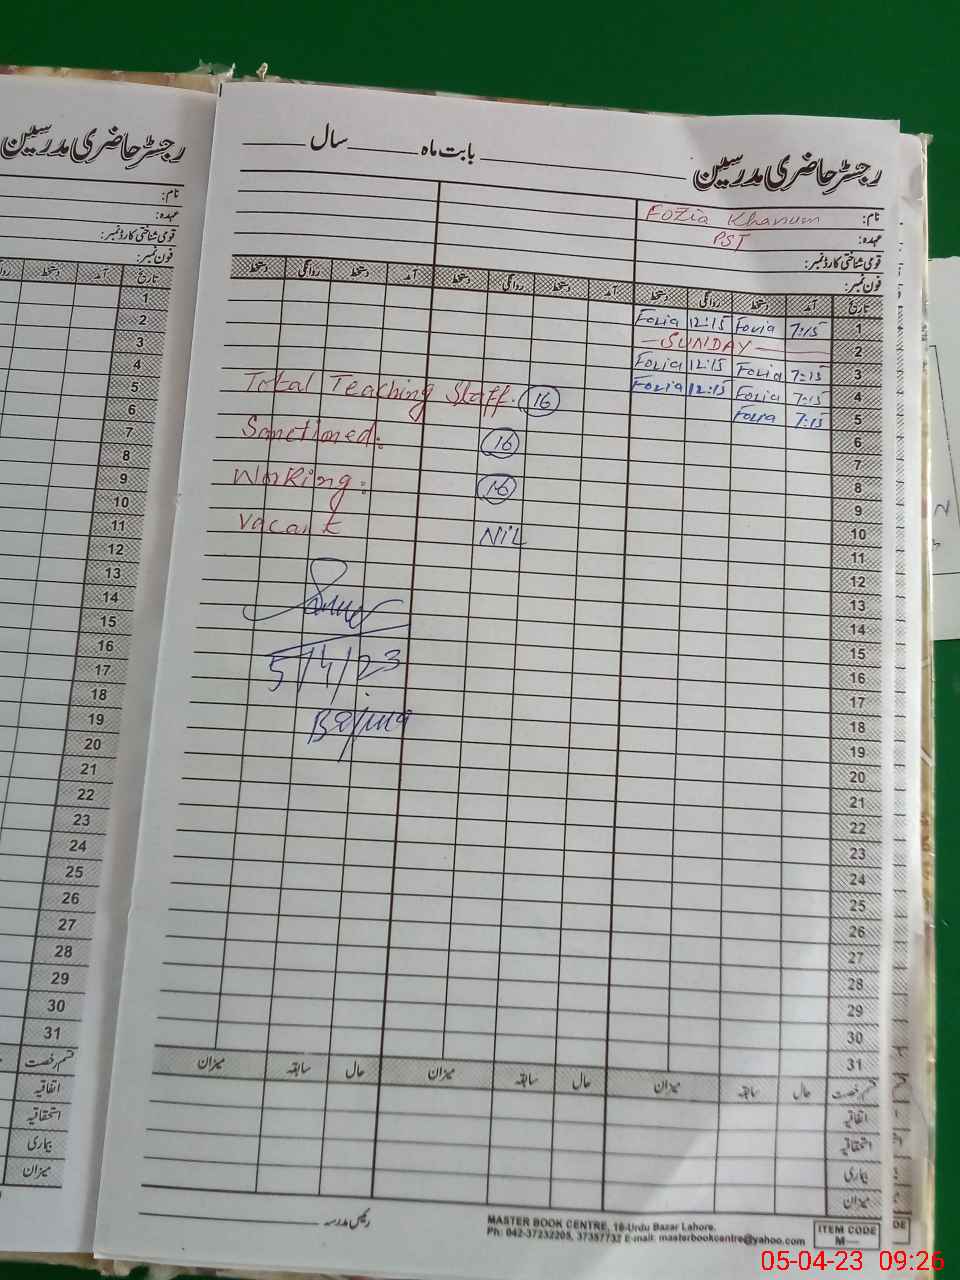 رجسٹر حاضری مدرسین
نام:
عہدہ:
قومی شناختی کارڈ نمبر:
فون نمبر:
تاریخ آمد دستخط
1
2
3
4
5
6
7
8
9
10
11
12
13
14
15
16
17
18
19
20
21
22
23
24
25
26
27
28
29
30
31
قسم رخصت
اتفاقیہ
استحقاقیہ
بیماری
میزان
رجسٹر حاضری مدرسین بابت ماہ سال
نام: Fozia Khanum
عہدہ: PST
قومی شناختی کارڈ نمبر:
فون نمبر:
تاریخ آمد دستخط روانگی دستخط آمد دستخط روانگی دستخط آمد دستخط روانگی دستخط
1 7:15 Fozia 12:15 Fozia
2 SUNDAY
3 7:15 Fozia 12:15 Fozia
4 7:15 Fozia 12:15 Fozia
5 7:15 Fozia
6
7
8
9
10
11
12
13
14
15
16
17
18
19
20
21
22
23
24
25
26
27
28
29
30
31
Total Teaching Staff. 16
Sanctioned: 16
Working: 16
Vacant NIL
5/4/23
قسم رخصت حال سابقہ میزان حال سابقہ میزان حال سابقہ میزان
اتفاقیہ
استحقاقیہ
بیماری
میزان
رئیس مدرسہ
MASTER BOOK CENTRE, 16-Urdu Bazar Lahore.
Ph: 042-37232205, 37357732 E-mail: masterbookcentre@yahoo.com
ITEM CODE
M—
05-04-23 09:26